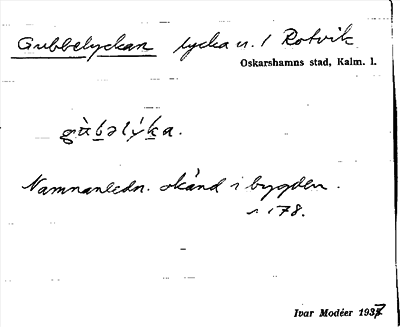 Gubbelyckan lycka u. / Rotvik
Oskarshamns stad, Kalm. l.
gùbəlýka.
Namnanledn. okänd i bygden.
s. 178.
Ivar Modéer 1937